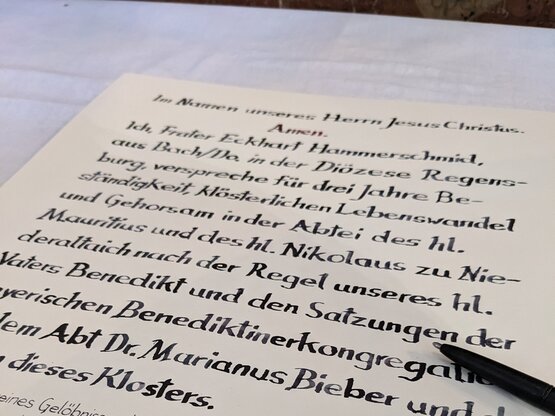 Im Namen unseres Herrn Jesus Christus.
Amen.
Ich, Frater Eckhart Hammerschmid,
aus Bach/Do. in der Diözese Regens-
burg, verspreche für drei Jahre Be-
ständigkeit, klösterlichen Lebenswandel
und Gehorsam in der Abtei des hl.
Mauritius und des hl. Nikolaus zu Nie-
deraltaich nach der Regel unseres hl.
Vaters Benedikt und den Satzungen der
ayerischen Benediktinerkongregatio
dem Abt Dr. Marianus Bieber und
dieses Klosters.
eines Gelöbnisses